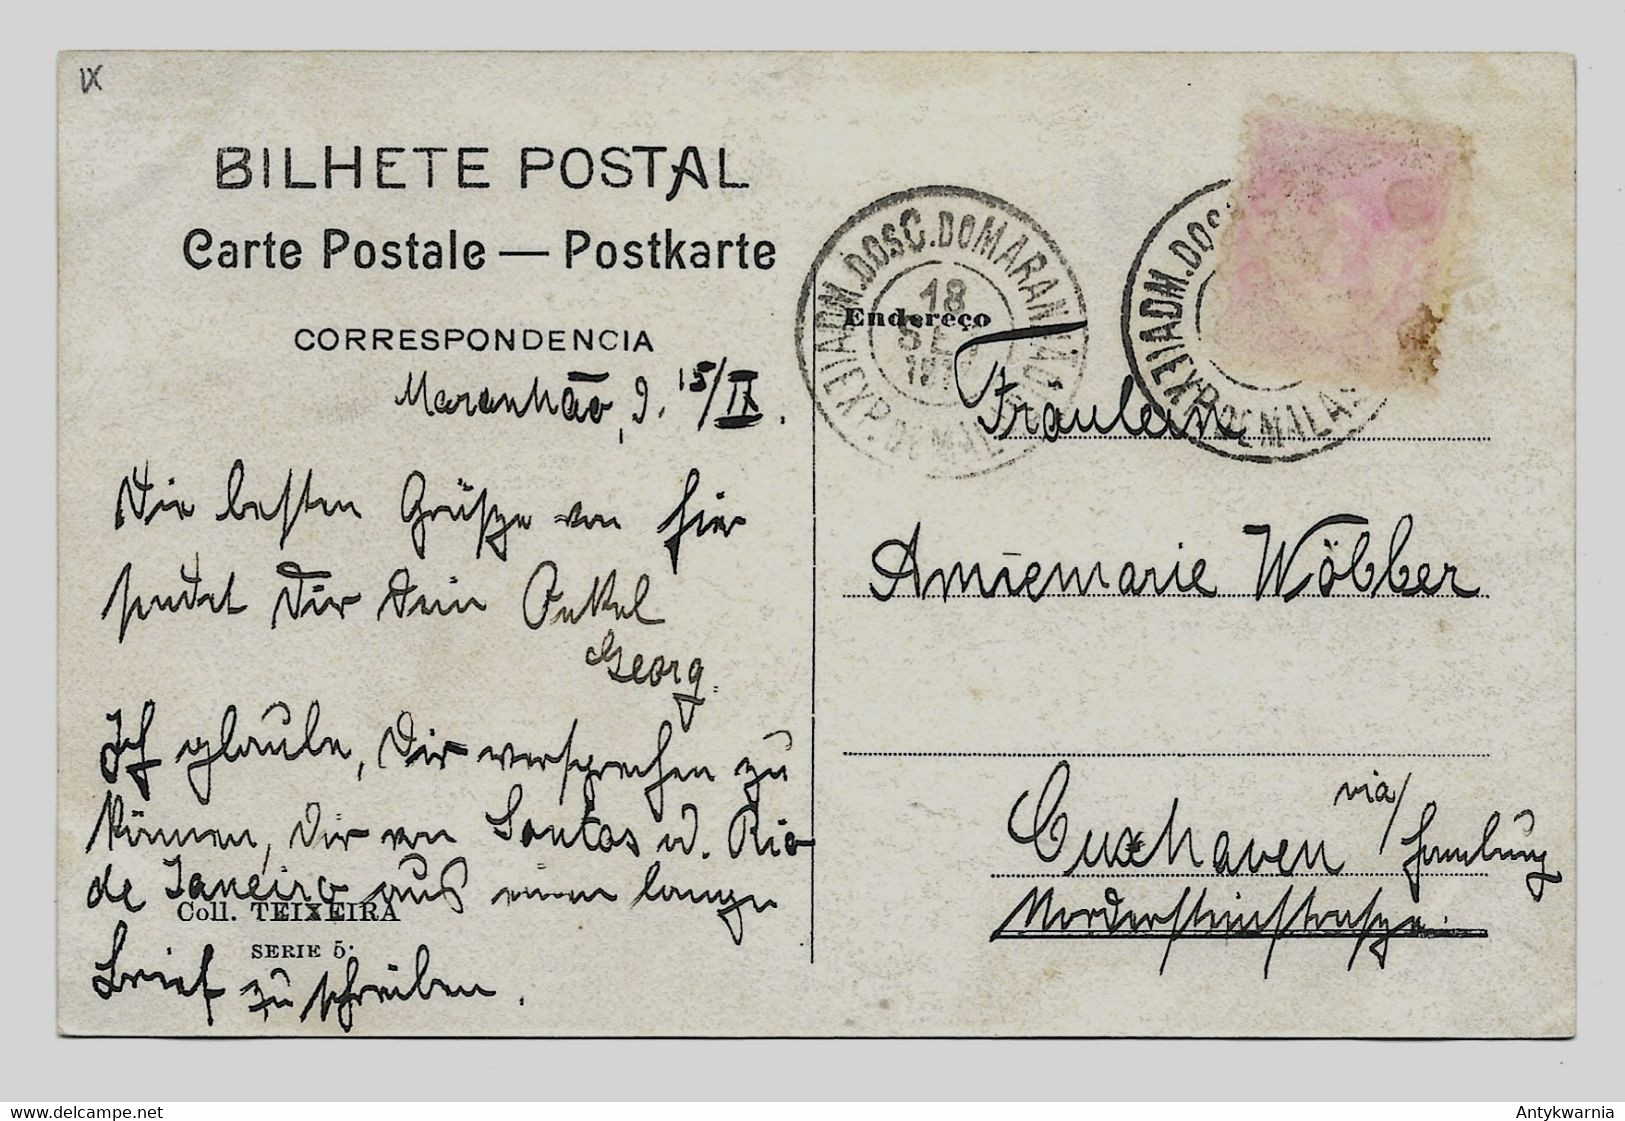 IX
BILHETE POSTAL
Carte Postale — Postkarte
CORRESPONDENCIA
Maranhão, 9. 15/IX.
Die besten Grüße von hier
sendet Dir Dein Onkel
Georg.
Ich glaube, Dir versprechen zu
können, Dir von Santos u. Rio
de Janeiro aus einen langen
Brief zu schreiben.
Coll. TEIXEIRA
SERIE 5ª
ADM. DOS C. DO MARANHÃO
18
SET
(EXP. DE MALAS)
Endereço
ADM. DOS
(EXP. DE MALAS
Fräulein
Annemarie Wöbber
Cuxhaven via/Hamburg
Nordersteinstrasse.
www.delcampe.net
Antykwarnia